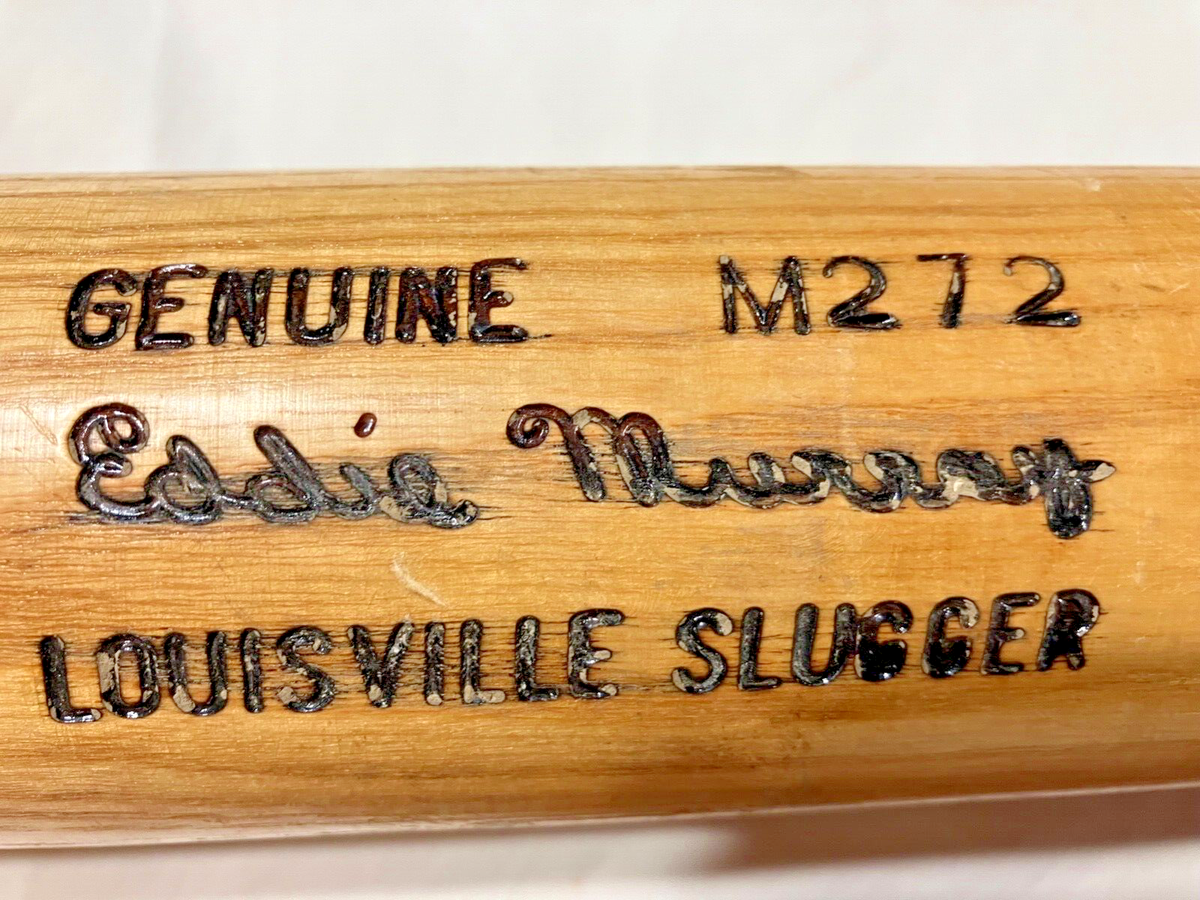 GENUINE M272
Eddie Murray
LOUISVILLE SLUGGER